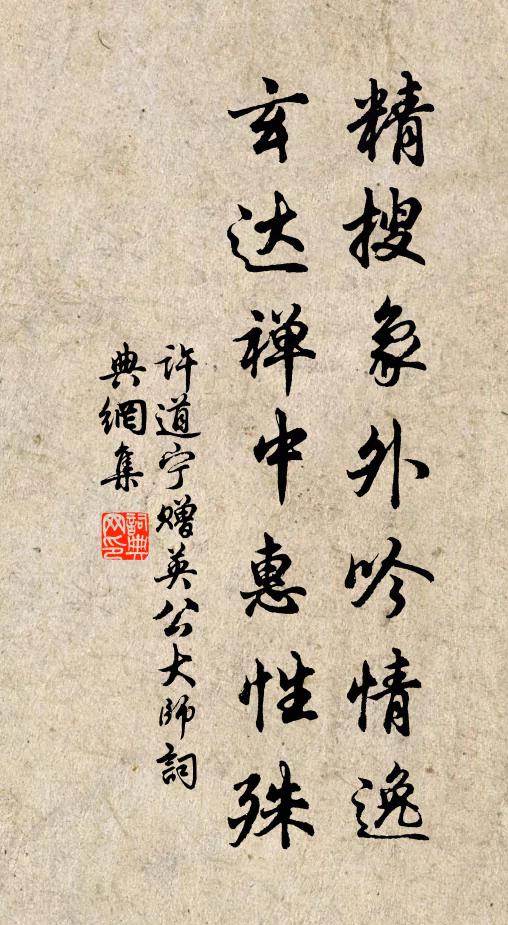 精搜象外吟情逸
玄达禅中惠性殊
许道宁赠英公大师詞
典網集
詞典网印